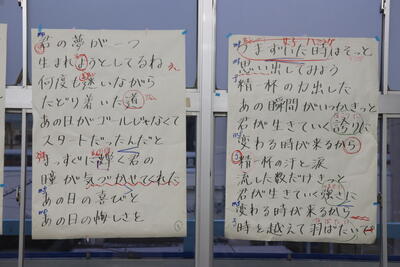 君の夢が一つ
生まれようとしてるね
何度も迷いながら
たどり着いた道
あの日がゴールじゃなくて
スタートだったんだと
まっすぐに輝く君の
瞳が気づかせてくれた
あの日の喜びと
あの日の悔しさを
つまずいた時はそっと
思い出してみよう
精一杯の力出した
あの瞬間がいつかきっと
君が生きていく誇りに
変わる時が来るから
精一杯の汗と涙
流した数だけきっと
君が生きていく強さに
変わる時が来るから
時を越えて羽ばたいて